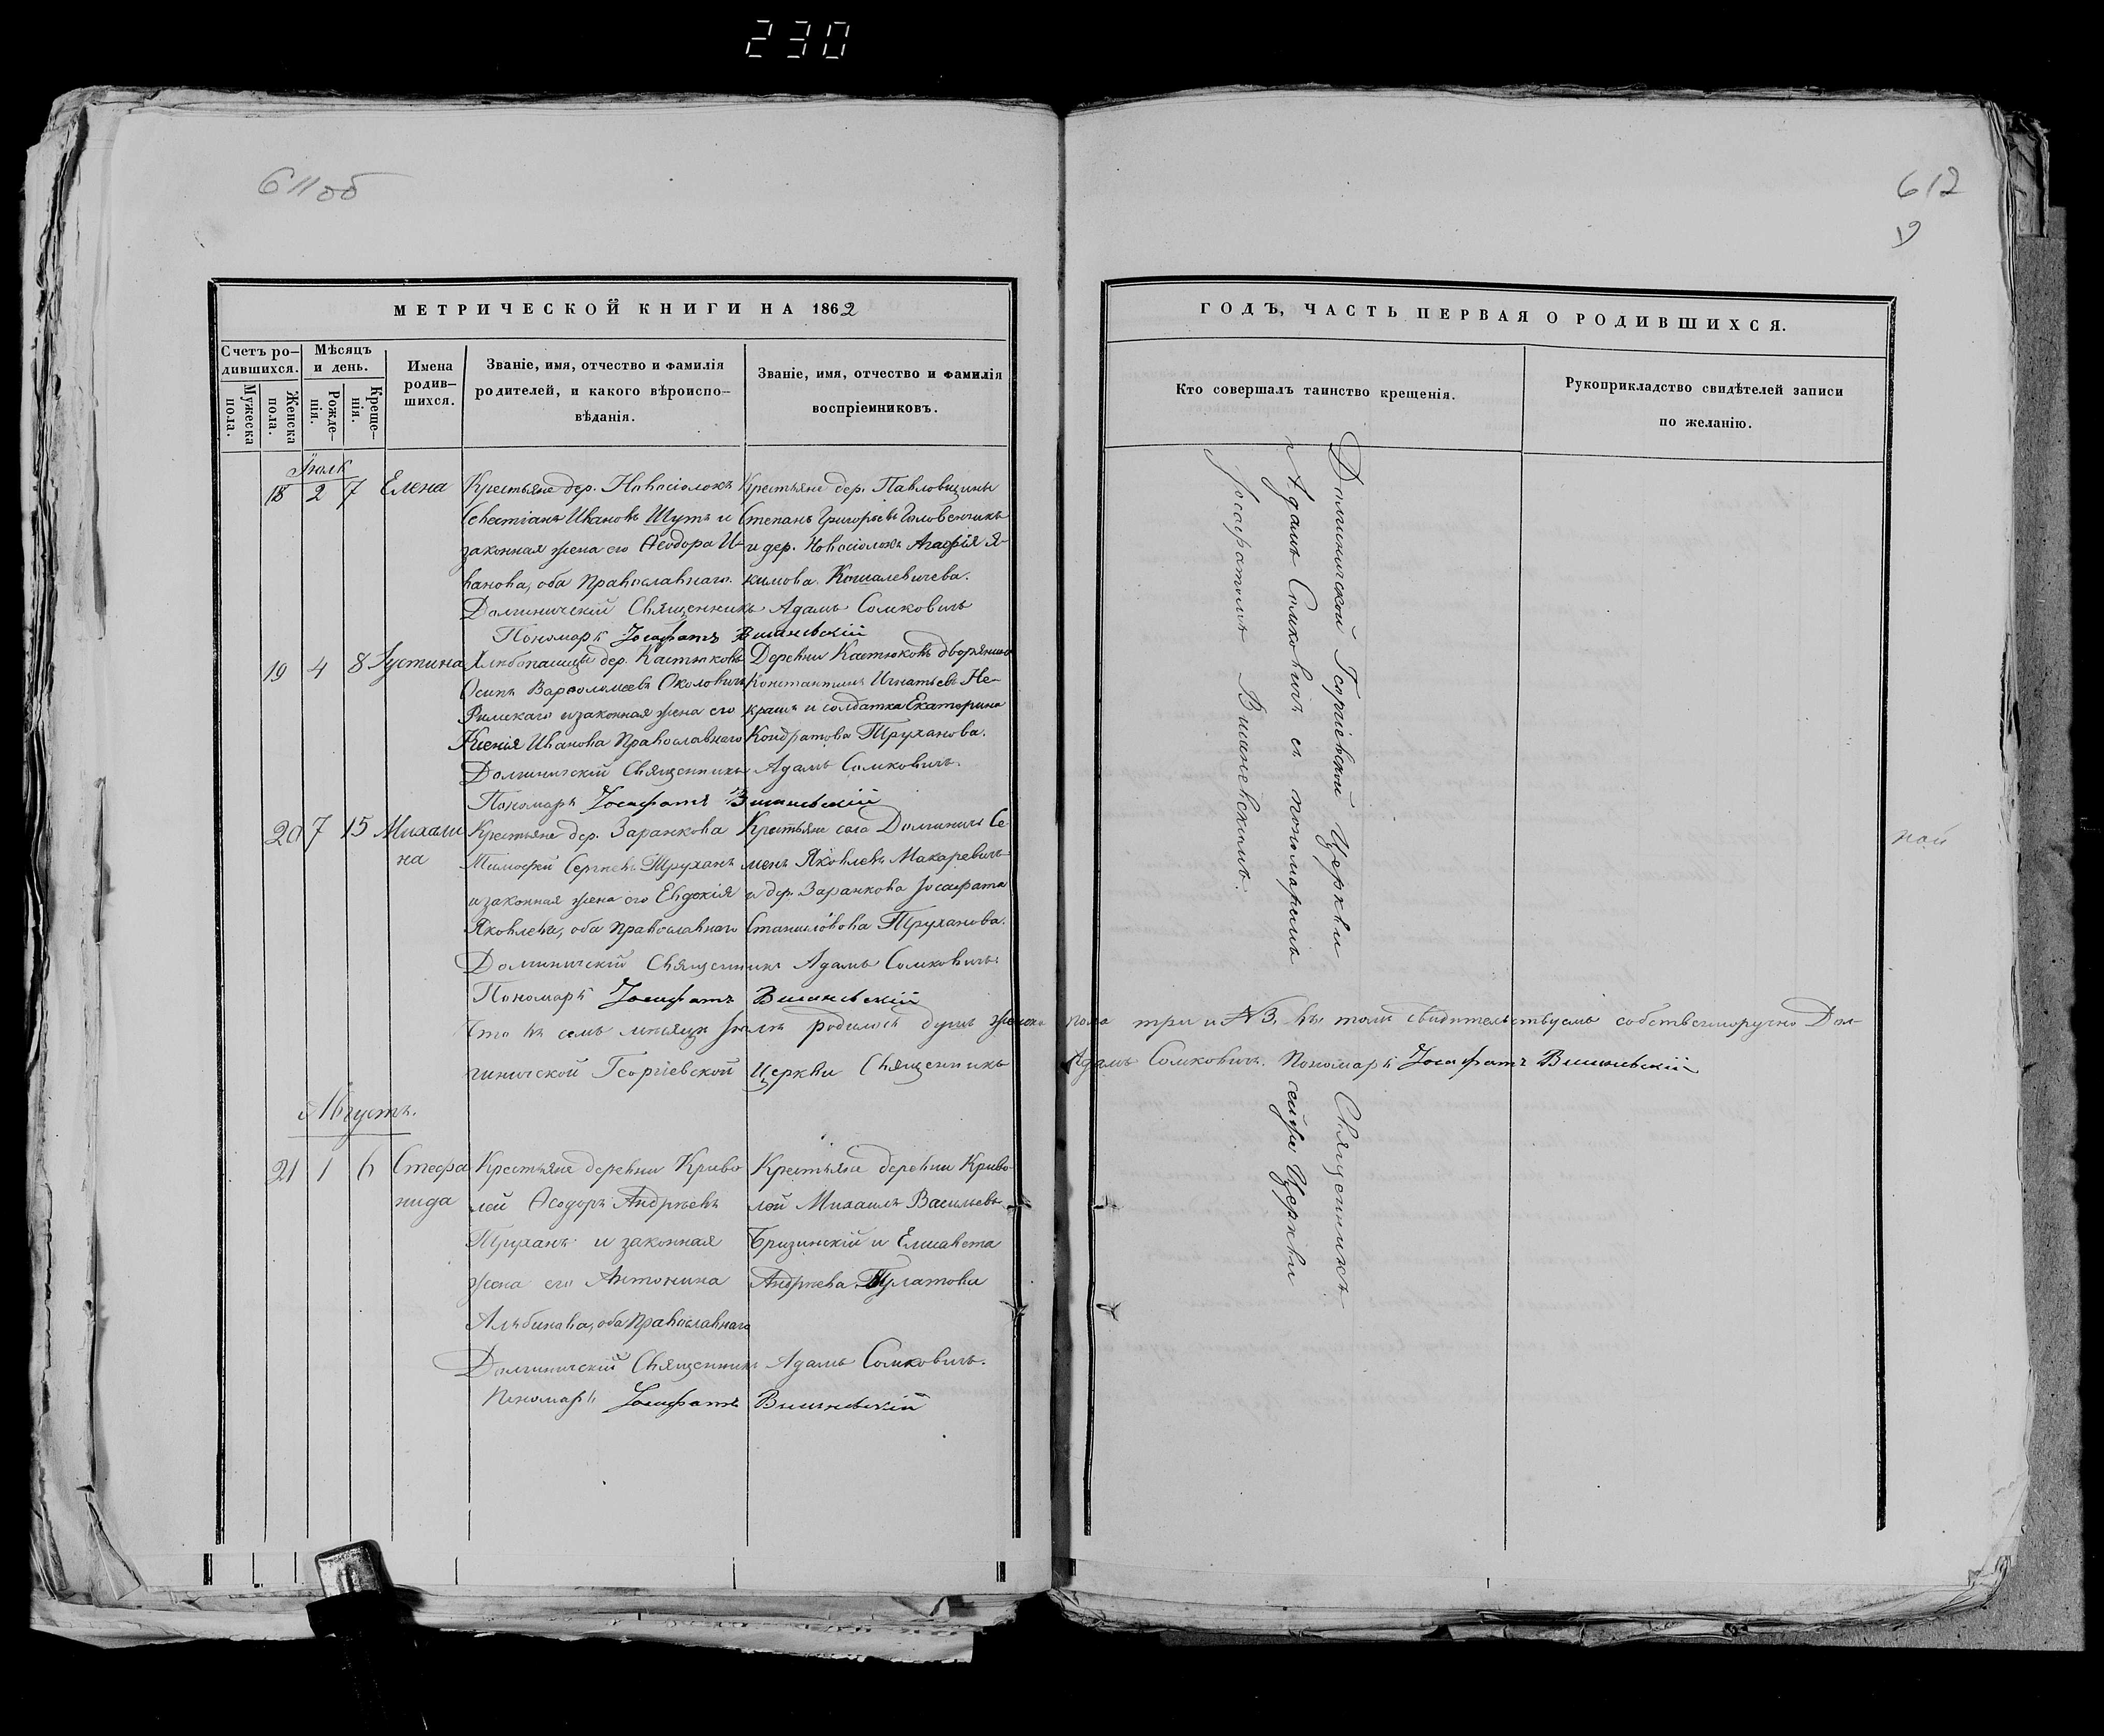 230
611об
612
МЕТРИЧЕСКОЙ КНИГИ НА 1862
Счетъ ро-
дившихся.
Мѣсяцъ
и день.
Мужеска
пола.
Женска
пола.
Рожде-
нія.
Креще-
нія.
Имена
родив-
шихся.
Званіе, имя, отчество и фамилія
родителей, и какого вѣроиспо-
вѣданія.
Званіе, имя, отчество и фамилія
воспріемниковъ.
18 2 7 Елена
Крестьяне дер.
Ивановъ Шутъ и
законная жена его Ѳеодора И-
ванова, оба Православнаго.
Крестьяне дер. Павловщины
Степанъ Григорьевъ
и дер. Агафія Я-
кимова
Долгиничскій Священникъ Адамъ Сомковичъ
Пономарь Іосафатъ Вишневскій
19 4 8 Іустина
Хлѣбопашцы дер. Кастюковъ
Осипъ Варѳоломеевъ Околовичъ
Римскаго и законная жена его
Ксенія Иванова Православнаго
Деревни Кастюковъ дворянинъ
Константинъ Игнатьевъ Не-
крашъ и солдатка Екатерина
Кондратова Труханова.
Долгиничскій Священникъ Адамъ Сомковичъ.
Пономарь Іосафатъ Вишневскій
20 7 15 Михали
на
Крестьяне дер. Заранкова
Тимофей Сергѣевъ Труханъ
и законная жена его Евдокія
Яковлева, оба Православнаго
Крестьяне села Долгиничъ Се
менъ Яковлевъ Макаревичъ
и дер. Заранкова Іосафата
Труханова.
Долгиничскій Священникъ Адамъ Сомковичъ
Пономарь Іосафатъ Вишневскій
Что въ семъ мѣсяцѣ Іюлѣ родилось душъ женска пола три и № 3, въ томъ свидѣтельствуемъ собственноручно Дол-
гиничской Георгіевской Церкви Священникъ Адамъ Сомковичъ. Пономарь Іосафатъ Вишневскій
Августъ.
21 1 6 Стефа
нида
Крестьяне деревни Криво
лой Ѳеодоръ Андреевъ
Труханъ и законная
жена его Антонина
Альбинова, оба Православнаго
Крестьяне деревни Криво-
лой Михаилъ Васильевъ
и Елисавета
Андреева
Долгиничскій Священникъ Адамъ Сомковичъ.
Пономарь Іосафатъ Вишневскій
ГОДЪ, ЧАСТЬ ПЕРВАЯ О РОДИВШИХСЯ.
Кто совершалъ таинство крещенія.
Рукоприкладство свидѣтелей записи
по желанію.
Долгиничской Георгіевской Церкви Священникъ
Адамъ Сомковичъ съ пономаремъ сейже Церкви
Іосафатомъ Вишневскимъ.